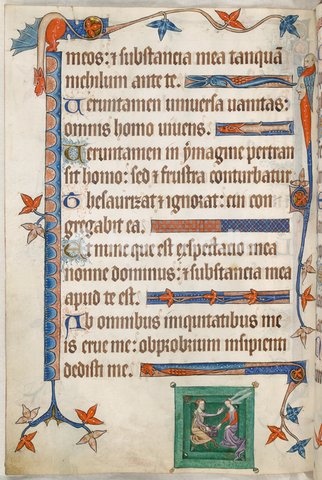 meos: ⁊ substancia mea tanquā
nichilum ante te.
Ueruntamen uniuersa uanitas:
omnis homo uiuens.
Ueruntamen in ymagine pertran
sit homo: sed ⁊ frustra conturbatur
Thesaurizat ⁊ ignorat: cui con
gregabit ea.
Et nunc que est expectacio mea
nonne dominus: ⁊ substancia mea
apud te est.
Ab omnibus iniquitatibus me
is erue me: obprobrium insipienti
dedisti me.